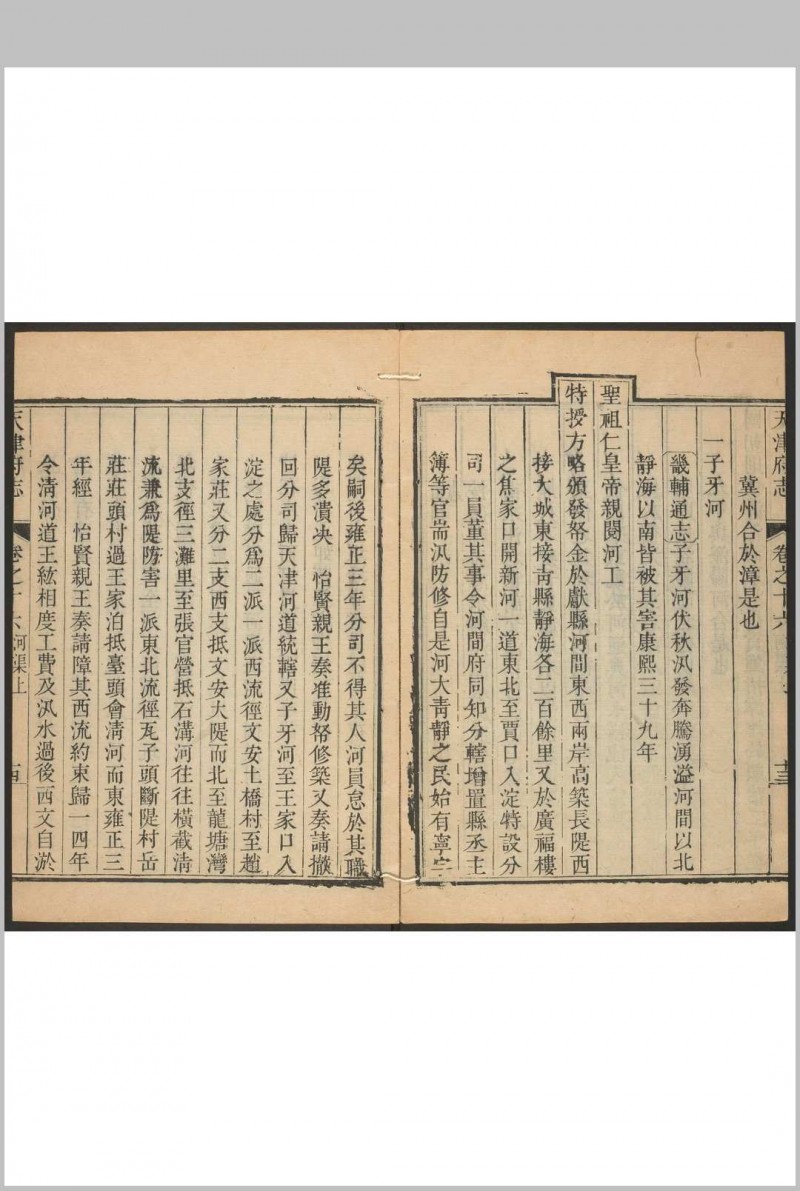 天津府志 卷之十六 十三
冀州合於漳是也
一子牙河
畿輔通志子牙河伏秋汛發奔騰湧溢河間以北
靜海以南皆被其害康熙三十九年
聖祖仁皇帝親閱河工
特授方略頒發帑金於獻縣河間東西兩岸高築長隄西
接大城東接青縣靜海各二百餘里又於廣福樓
之焦家口開新河一道東北至賈口入淀特設分
司一員董其事令河間府同知分轄增置縣丞主
簿等官耑汛防修自是河大青靜之民始有寧宇
矣嗣後雍正三年分司不得其人河員怠於其職
隄多潰决 怡賢親王奏准動帑修築又奏請撤
回分司歸天津河道統轄又子牙河至王家口入
淀之處分爲二派一派西流徑文安土橋村至趙
家莊又分二支西支抵文安大隄而北至龍塘灣
北支徑三灘里至張官營抵石溝河往往橫截淸
流兼爲隄防害一派東北流徑瓦子頭斷隄村岳
莊莊頭村過王家泊抵臺頭會淸河而東雍正三
年經 怡賢親王奏請障其西流約束歸一四年
令淸河道王紘相度工費及汛水過後西支自淤
天津府志 卷之十六 河渠上 十四